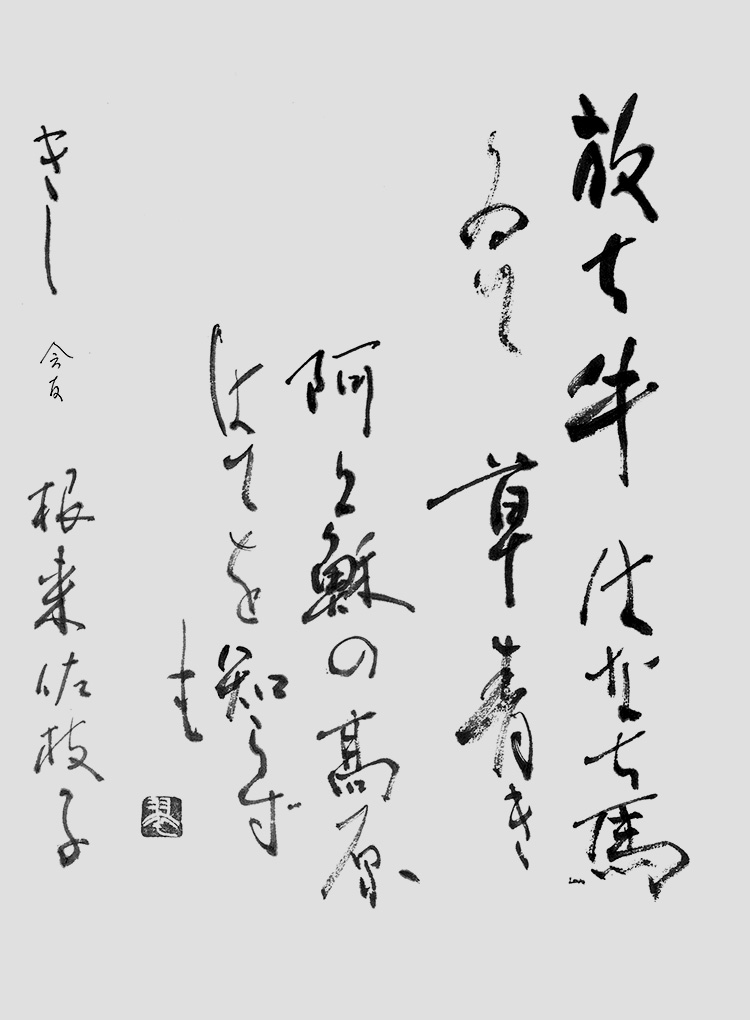 放ち牛はなち馬
ゐて草青き
阿蘇の高原
はてを知らず
も
きし 会友 根来佐枝子